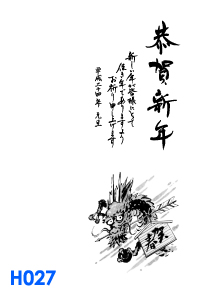 恭賀新年
新しい年が皆様にとって
佳き年でありますよう
お祈り申し上げます
平成二十四年 元旦
H027